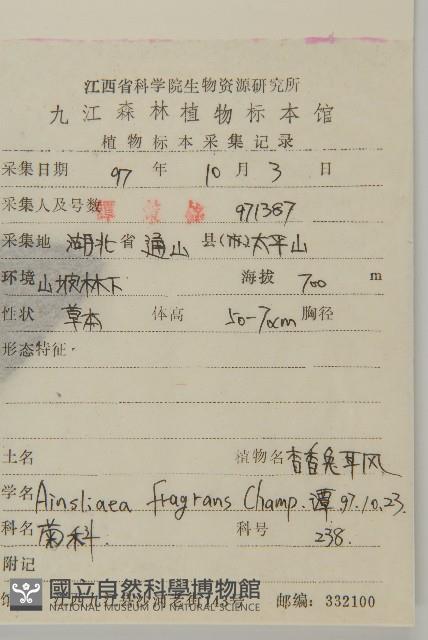 江西省科学院生物资源研究所
九江森林植物标本馆
植物标本采集记录
采集日期 97 年 10 月 3 日
采集人及号数 971387
采集地 湖北省 通山 县(市)太平山
环境 山坡林下 海拔 700 m
性状 草本 体高 50-70cm 胸径
形态特征
土名 植物名 杏香兔耳风
学名 Ainsliaea fragrans Champ. 谭 97.10.23.
科名 菊科. 科号 238.
附记
國立自然科學博物館
NATIONAL MUSEUM OF NATURAL SCIENCE
馆 江西九江县沙河老街143号 邮编：332100